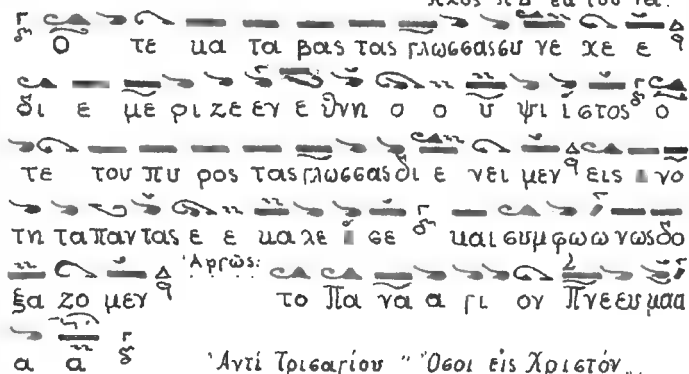 Ο τε κα τα βας τας γλωσσασσυ νε χε ε
δι ε με ρι ζε εν ε θνη ο ο υ ψι ιστος ο
τε του πυ ρος τας γλωσσας δι ε νει μεν εις ε νο
τη τα παν τας ε ε κα λε ε σε και συμφω ω νως δο
ξα ζο μεν Ἀργῶς: το Πα να α γι ον Πνε ευ μα α
α α Ἀντί Τρισαγίου "Ὅσοι εἰς Χριστόν...